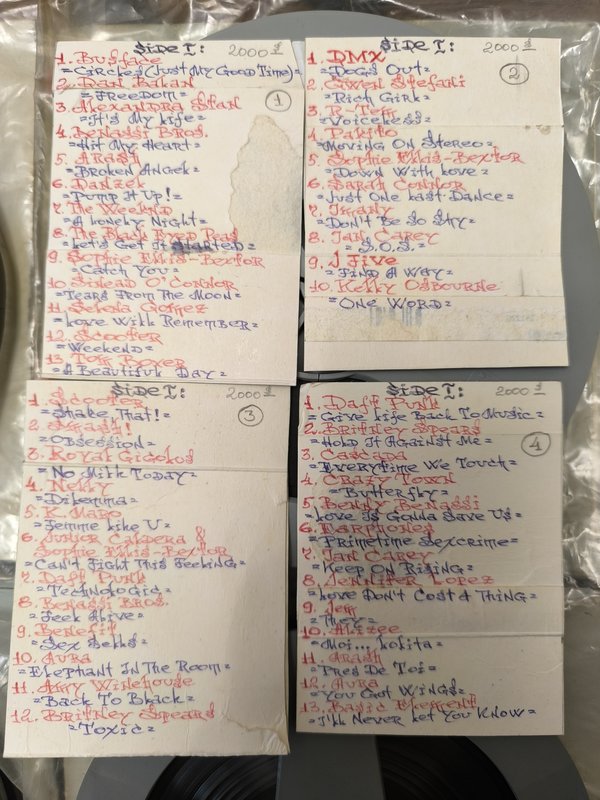 Side I: 2000 s
1
1. Busface
"Circles (Just My Good Time)"
2. Dan Balan
"Freedom"
3. Alexandra Stan
"It's My Life"
4. Benassi Bros.
"Hit My Heart"
5. Arash
"Broken Angel"
6. Danzel
"Pump It Up!"
7. The Weeknd
"A Lonely Night"
8. The Black Eyed Peas
"Let's Get It Started"
9. Sophie Ellis-Bextor
"Catch You"
10. Sinead O'Connor
"Tears From The Moon"
11. Selena Gomez
"Love Will Remember"
12. Scooter
"Weekend"
13. Tom Boxer
"A Beautiful Day"
Side I: 2000 s
2
1. DMX
"Dogs Out"
2. Gwen Stefani
"Rich Girl"
3. R-Tem
"Voiceless"
4. Pakito
"Moving On Stereo"
5. Sophie Ellis-Bextor
"Down With Love"
6. Sarah Connor
"Just One Last Dance"
7. Imany
"Don't Be So Shy"
8. Ian Carey
"S.O.S."
9. J Five
"Find A Way"
10. Kelly Osbourne
"One Word"
Side I: 2000 s
3
1. Scooter
"Shake That!"
2. Smash!
"Obsession"
3. Royal Gigolos
"No Milk Today"
4. Nelly
"Dilemma"
5. K. Maro
"Femme Like U"
6. Junior Caldera &
Sophie Ellis-Bextor
"Can't Fight This Feeling"
7. Daft Punk
"Technologic"
8. Benassi Bros.
"Feel Alive"
9. Benefit
"Sex Sells"
10. Aura
"Elephant In The Room"
11. Amy Winehouse
"Back To Black"
12. Britney Spears
"Toxic"
Side I: 2000 s
4
1. Daft Punk
"Give Life Back To Music"
2. Britney Spears
"Hold It Against Me"
3. Cascada
"Everytime We Touch"
4. Crazy Town
"Butterfly"
5. Benny Benassi
"Love Is Gonna Save Us"
6. Earphones
"Primetime Sexcrime"
7. Ian Carey
"Keep On Rising"
8. Jennifer Lopez
"Love Don't Cost A Thing"
9. Jem
"They"
10. Alizee
"Moi... Lolita"
11. Arash
"Pres De Toi"
12. Aura
"You Got Wings"
13. Basic Element
"I'll Never Let You Know"